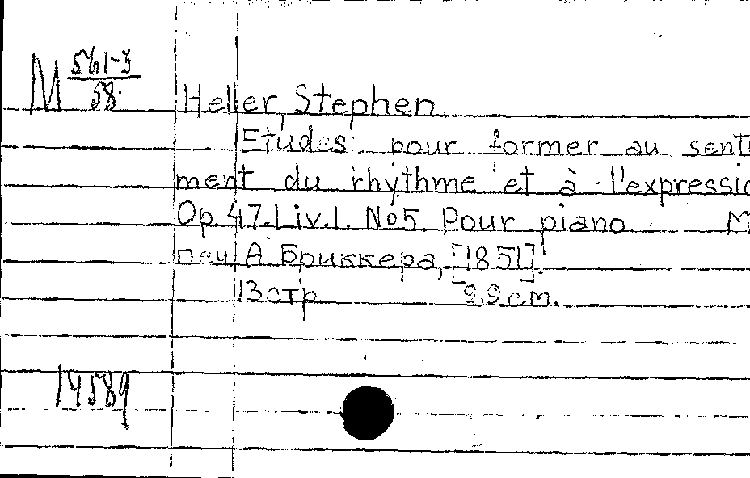 M 561-3
58
Heller, Stephen
Etudes pour former au senti
ment du rhythme et à l'expressio
Op. 47. Liv. 1. No 5. Pour piano М
печ А. Бриккера, [1851].
13 стр